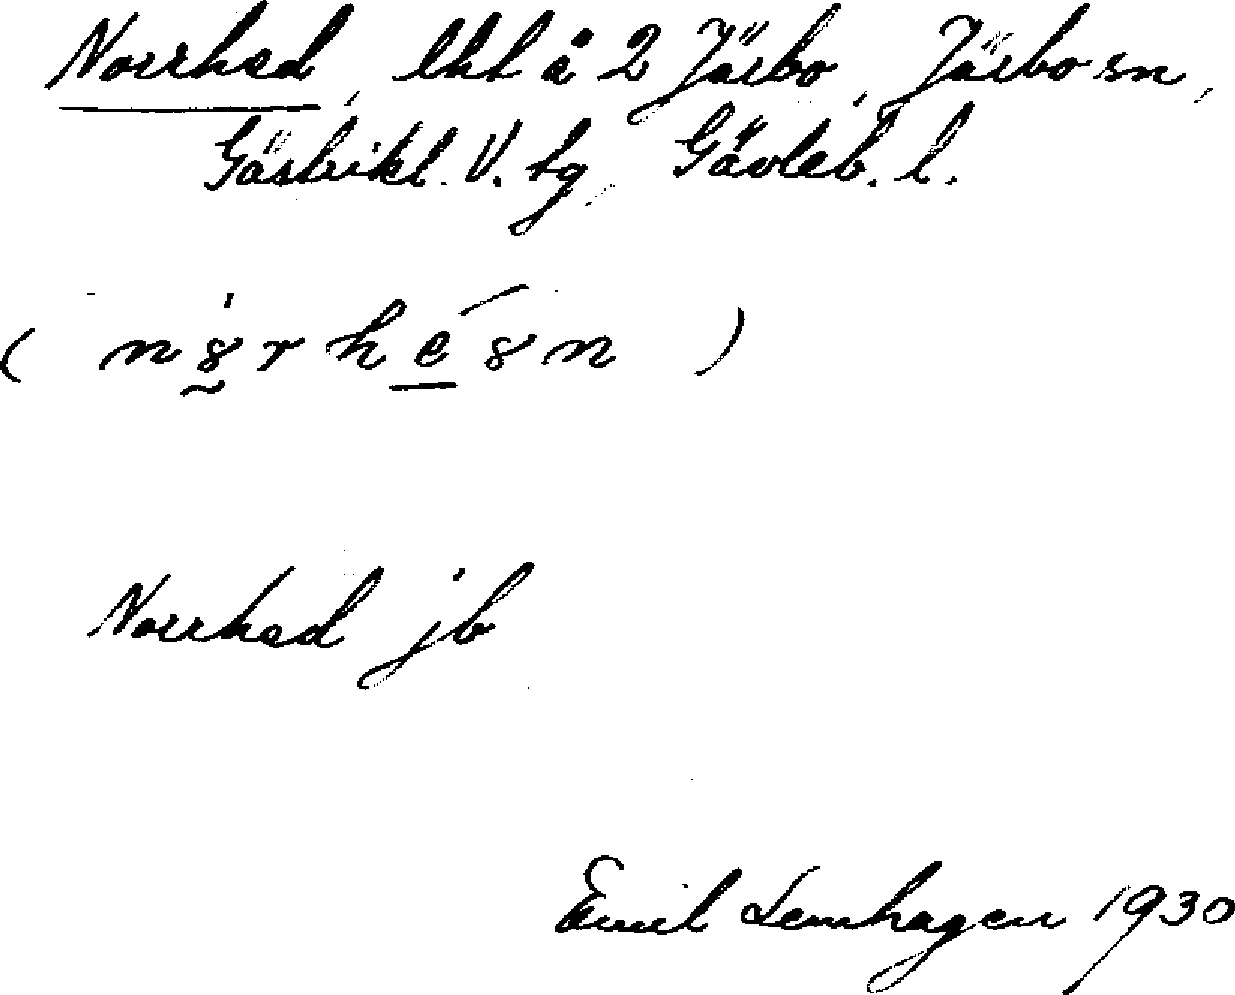 Norrhed, lht å 2 Järbo, Järbo sn,
Gästrikl. V. tg, Gävleb. l.
Norrhed jb
Emil Lemhagen 1930